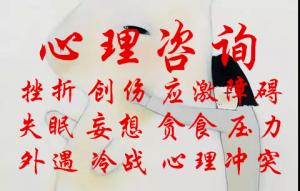 心理咨询
挫折 创伤 应激障碍
失眠 妄想 贪食 压力
外遇 冷战 心理冲突